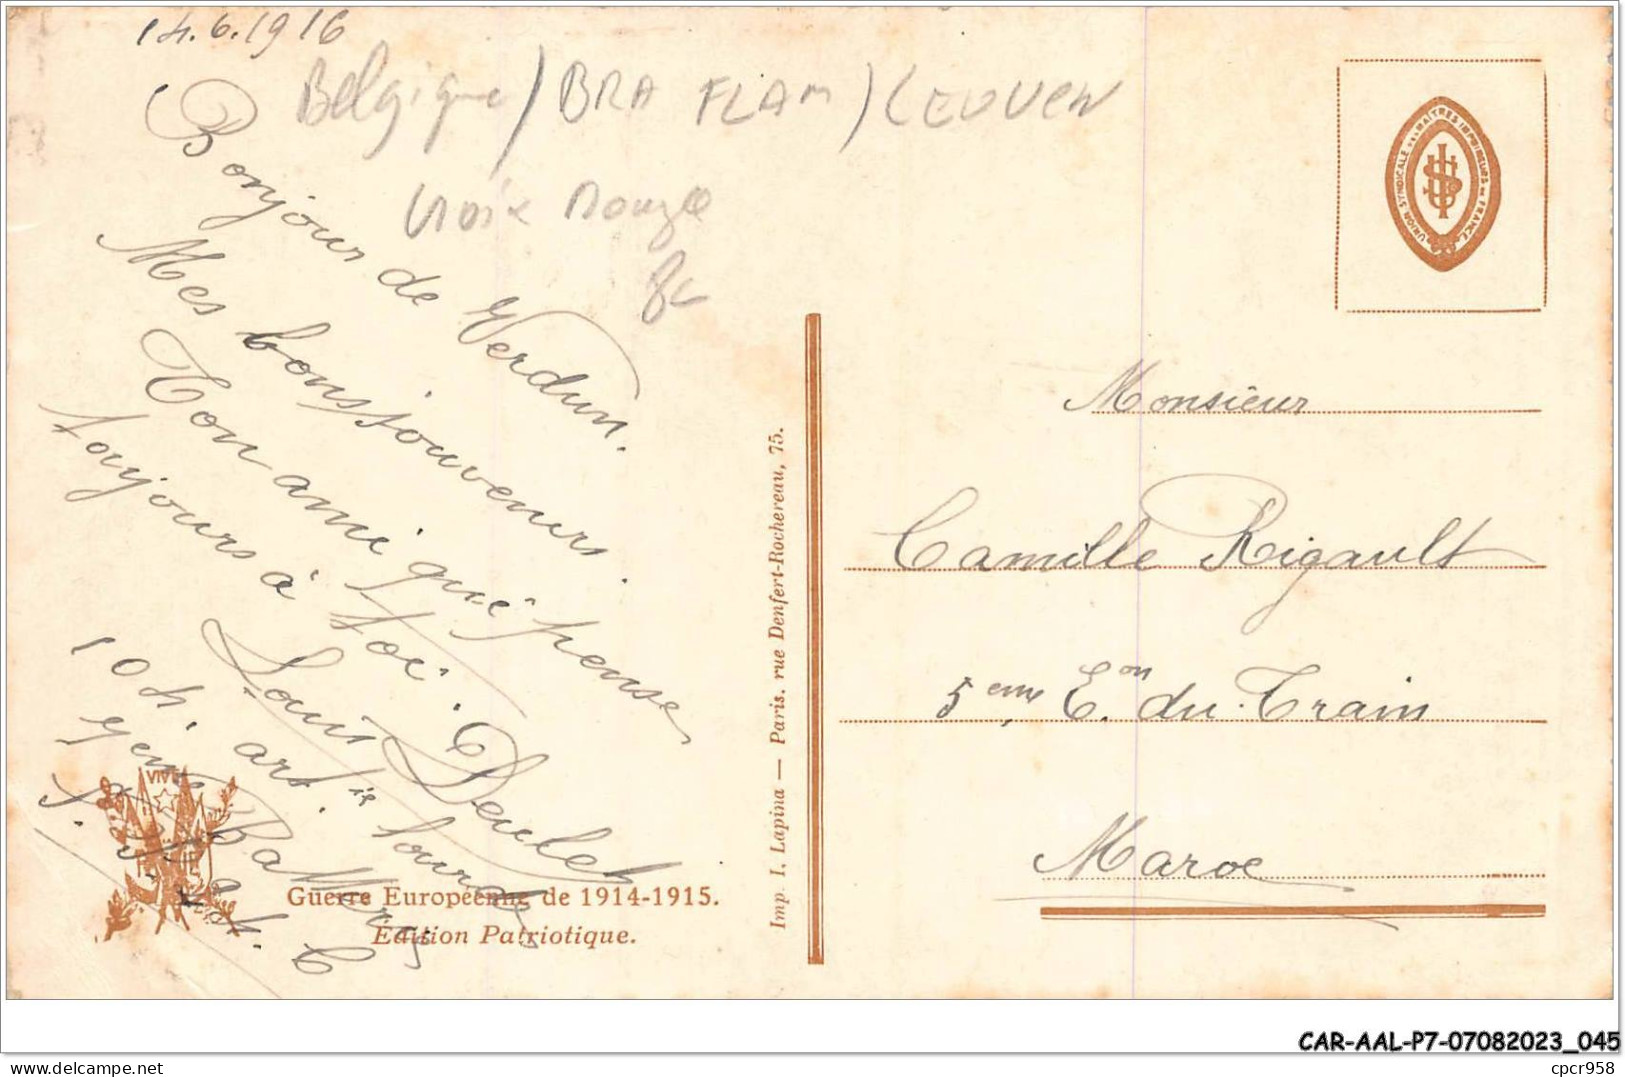 14.6.1916
Belgique / BRA FLAM / LEUVEN
Croix Rouge
Bonjour de Verdun.
Mes bons souvenirs.
Ton ami qui pense
toujours à toi.
Louis Deulch
10 h. art.ie lourde
Batterie
S. C
VIVE
Guerre Européenne de 1914-1915.
Édition Patriotique.
Imp. I. Lapina — Paris. rue Denfert-Rochereau, 75.
UNION SYNDICALE DES MAITRES IMPRIMEURS DE FRANCE
Monsieur
Camille Rigault
5eme E.on du Train
Maroc
CAR-AAL-P7-07082023_045
https://www.delcampe.net
cpcr958